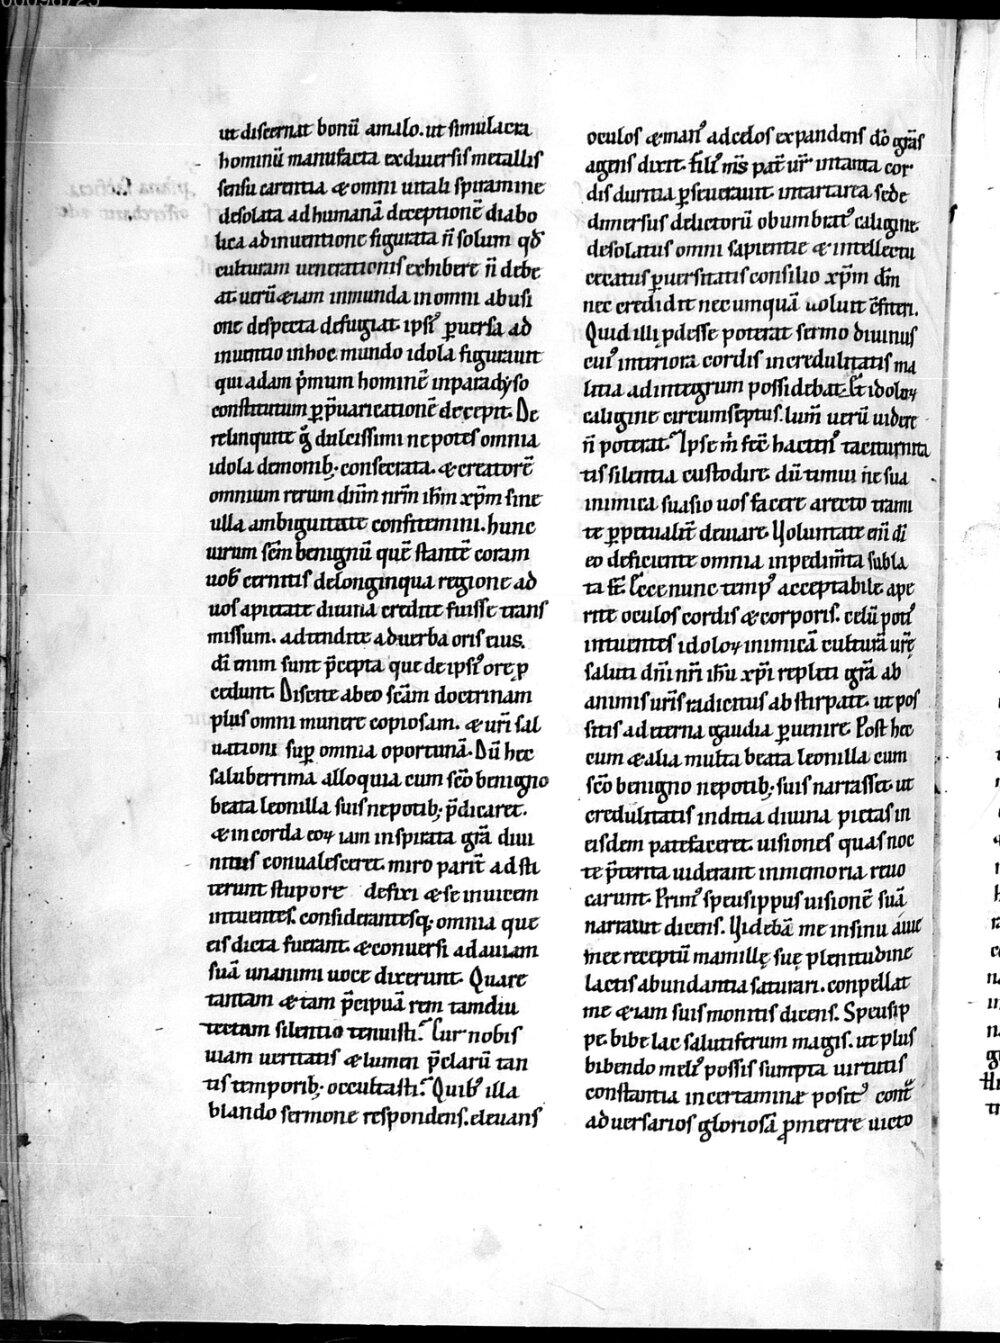 ut discernat bonū amalo. ut simulacra
hominū manufacta exdiuersis metallis
sensu carentia & omni uitali spiramine
desolata adhumanā deceptionē diabo
lica adinuentione figurata n̄ solum qđ
culturam uenerationis exhibere n̄ debe
at. uerū &iam inmunda inomni abusi
one despecta defugiat. ipsiꝰ ꝑuersa ad
inuentio inhoc mundo idola figurauit
qui adam p̄mum hominē inparadyso
constitutum ꝑp̄uaricationē decepit. De
relinquite g̊ dulcissimi nepotes omnia
idola demonib; consecrata. & creatorē
omnium rerum dn̄m nr̄m ih̄m xp̄m sine
ulla ambiguitate confitemini. hunc
uirum sc̄m benignū quē stantē coram
uob̄ cernitis delonginqua regione ad
uos apietate diuina credite fuisse trans
missum. adtendite aduerba oris eius.
dī enim sunt p̄cepta que de ipsiꝰ ore ꝓ
cedunt. Discite abeo sc̄am doctrinam
plus omni munere copiosam. & ur̄i sal
uationi suꝑ omnia oportunā. Dū hec
saluberrima alloquia cum sc̄o benigno
beata leonilla suis nepotib; p̄dicaret.
& in corda eoꝝ iam inspirata gr̄a diui
nitus conualesceret. miro parit̄ adsti
terunt stupore defixi & se inuicem
intuentes. considerantesq; omnia que
eis dicta fuerant. & conuersi adauiam
suā unanimi uoce dixerunt. Quare
tantam & tam p̄cipuā rem tamdiu
tectam silentio tenuisti? Cur nobis
uiam ueritatis & lumen p̄clarū tan
tis temporib; occultasti? Quibꝰ illa
blando sermone respondens. eleuans
oculos & manꝰ adcelos expandens dō gr̄as
agens dixit. filiꝰ m̄s pat̄ ur̄ intanta cor
dis duritia ꝑseuerauit. intartarea sede
dimersus delictorū obumbratꝰ caligine.
desolatus omni sapientie & intellectu
cecatus ꝑuersitatis consilio xp̄m dm̄
nec credidit nec umquā uoluit c̄fiteri.
Quid illi ꝓdesse poterat sermo diuinus
cuiꝰ interiora cordis incredulitatis ma
litia adintegrum possidebat. Et idoloꝝ
caligine circumseptus. lum̄ uerū uidere
n̄ poterat. Ipse m̄ fec̄ hactenꝰ taciturnita
tis silentia custodire. dū timui ne sua
inimica suasio uos facere arecto trami
te ꝑpetualit̄ deuiare. Uoluntate eni di
eo deficiente omnia inpedim̄ta subla
ta st̄. Ecce nunc tempꝰ acceptabile. ape
rite oculos cordis & corporis. celū potiꝰ
intuentes idoloꝝ inimicā culturā ur̄ę
saluti dn̄i nr̄i ih̄u xp̄i repleti gr̄a ab
animis ur̄is radicitus abstirpate. ut pos
sitis adeterna gaudia ꝑuenire. Post hec
cum & alia multa beata leonilla cum
sc̄o benigno nepotib; suis narrasset. ut
credulitatis inditia diuina pietas in
eisdem patefaceret. uisiones quas noc
te p̄terita uiderant inmemoria reuo
carunt. Primꝰ speusippus uisionē suā
narrauit dicens. Uidebā me insinu auie
mee receptū mamillę suę plenitudine
lactis abundantia saturari. conpellat
me &iam suis monitis dicens. Speusip
pe. bibe lac salutiferum magis. ut plus
bibendo meliꝰ possis sumpta uirtutis
constantia incertamine positꝰ cont̄
aduersarios gloriosā ꝓmerere uicto